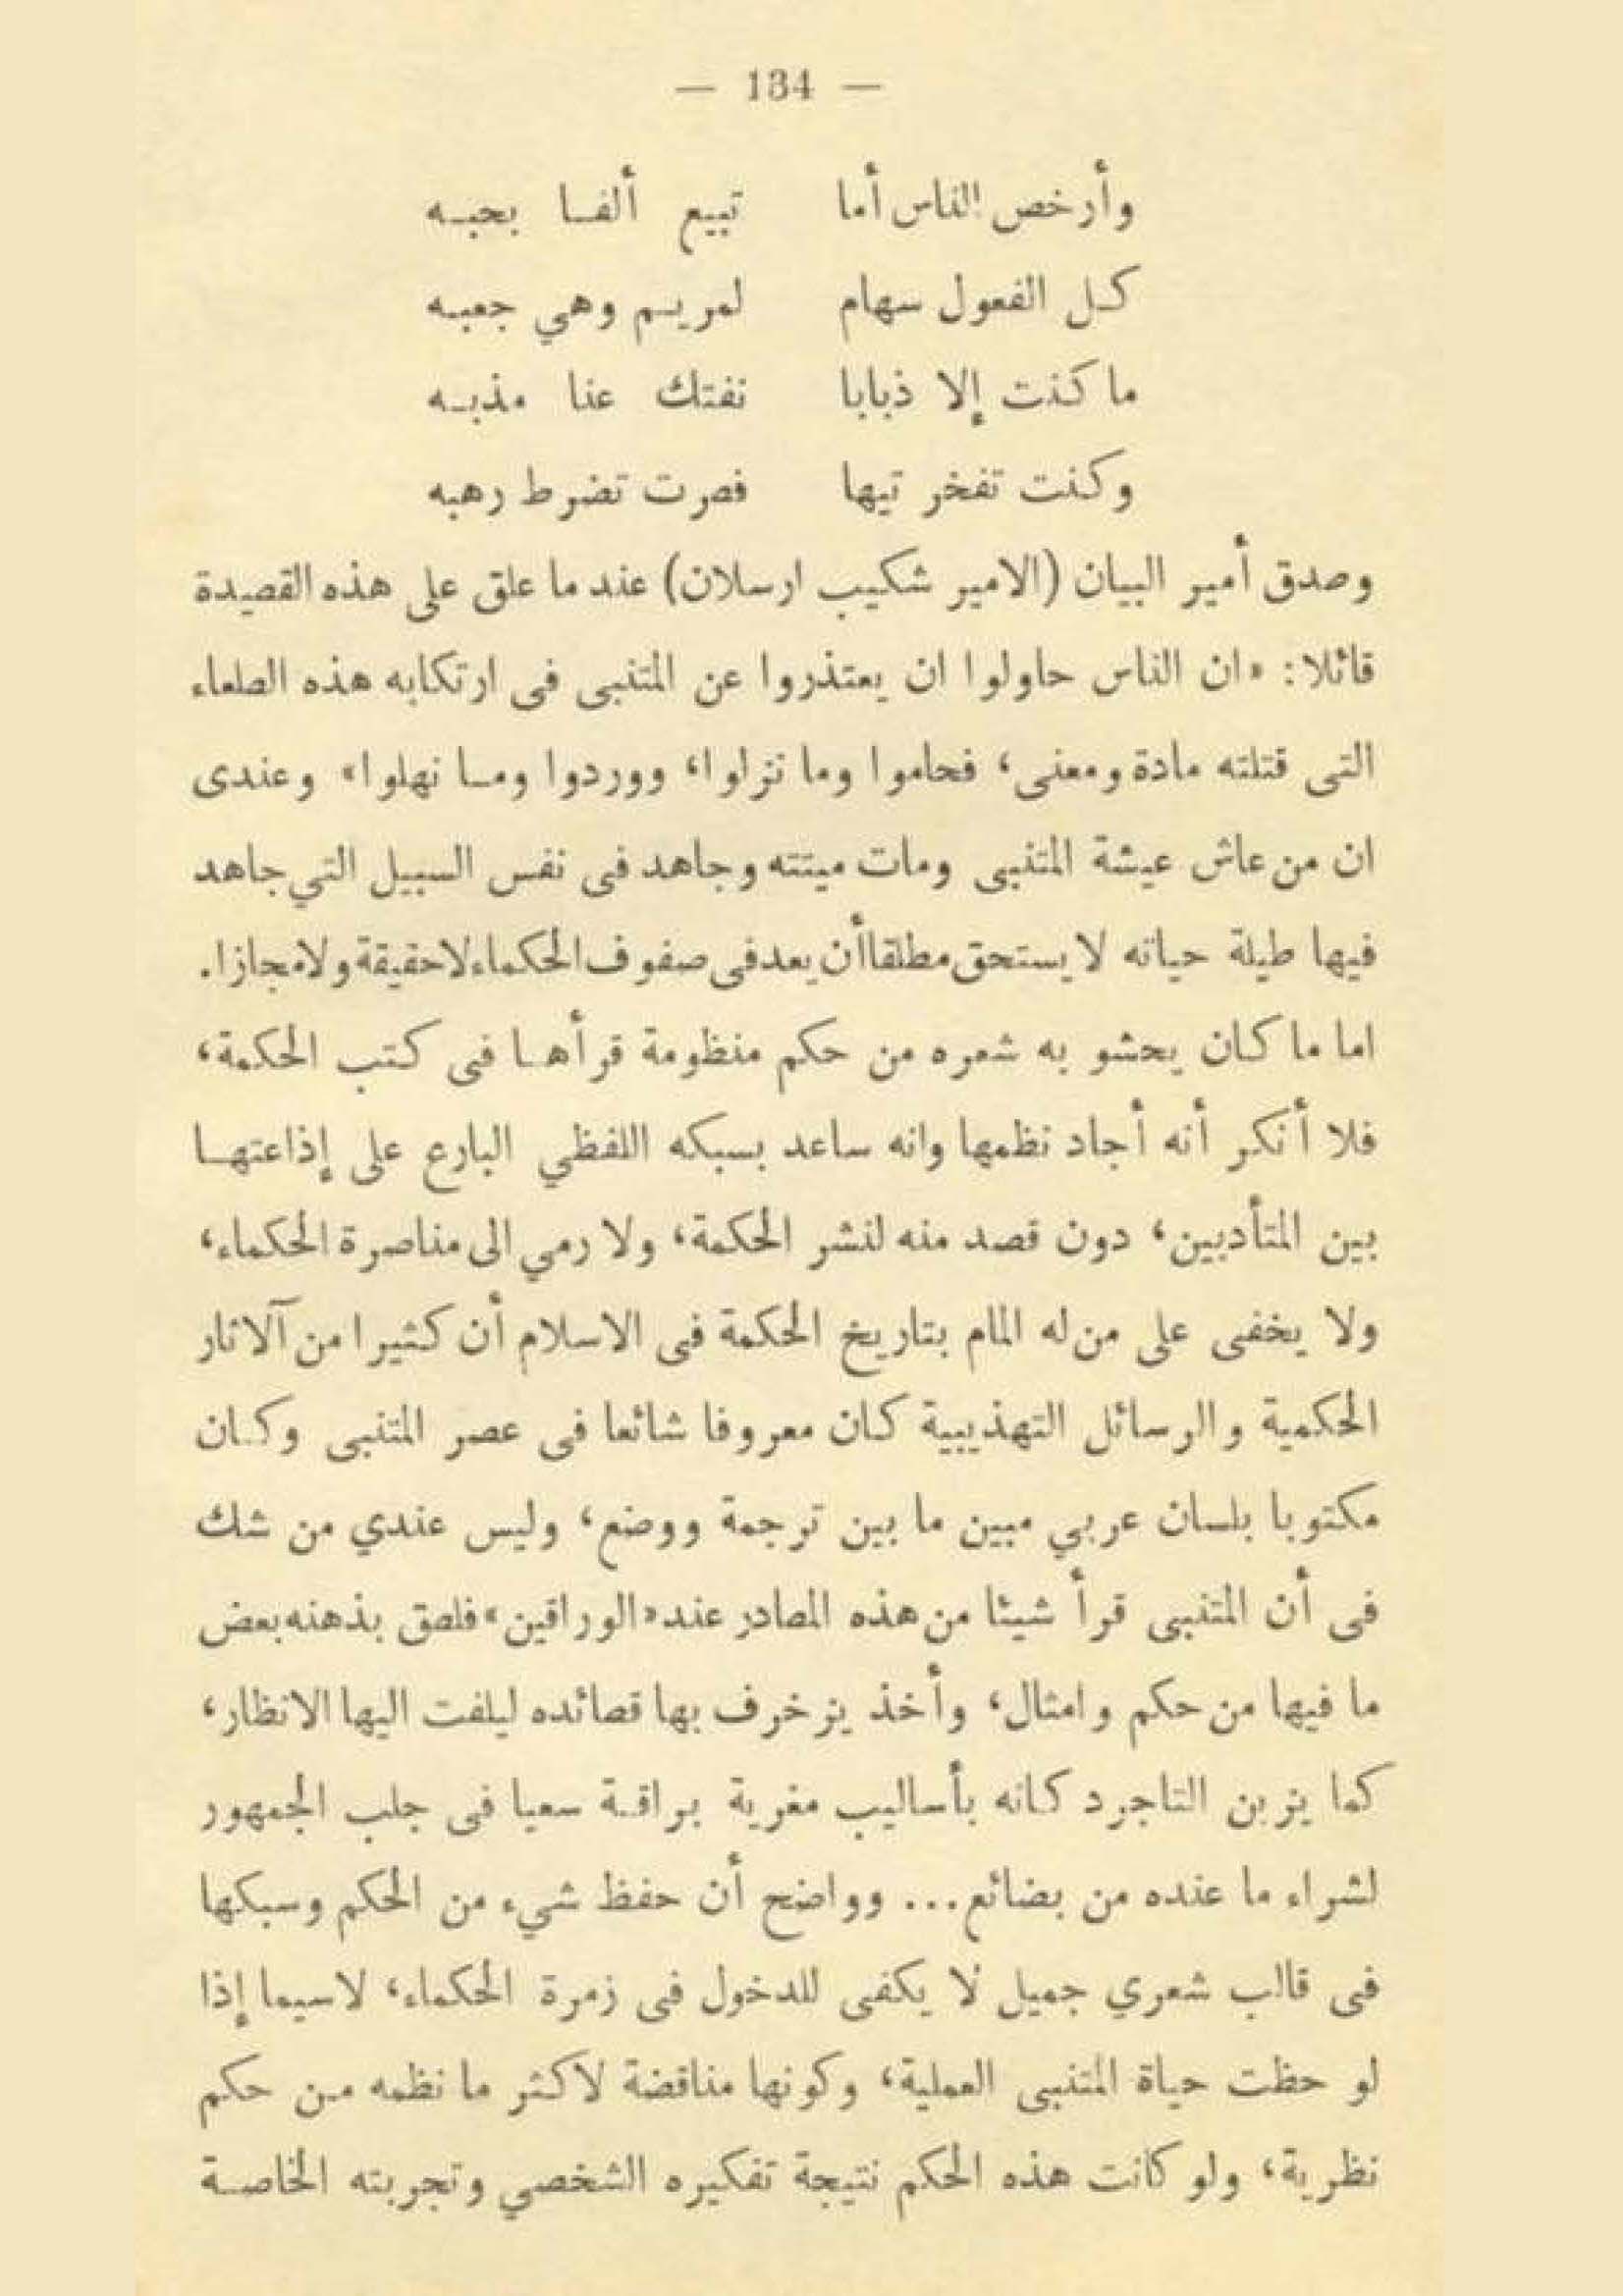 — 134 —
وأرخص الناس أما تبيع ألفا بحبه
كل الفعول سهام لمريم وهي جعبه
ما كنت إلا ذبابا نفتك عنا مذبه
وكنت تفخر تيها فصرت تضرط رهبه
وصدق أمير البيان (الامير شكيب ارسلان) عند ما علق على هذه القصيدة
قائلا: «ان الناس حاولوا ان يعتذروا عن المتنبى فى ارتكابه هذه الصلعاء
التى قتلته مادة ومعنى، فحاموا وما نزلوا، ووردوا وما نهلوا» وعندى
ان من عاش عيشة المتنبى ومات ميتته وجاهد فى نفس السبيل التي جاهد
فيها طيلة حياته لا يستحق مطلقا أن يعد فى صفوف الحكماء لا حقيقة ولا مجازا.
اما ما كان يحشو به شعره من حكم منظومة قرأها فى كتب الحكمة،
فلا أنكر أنه أجاد نظمها وانه ساعد بسبكه اللفظي البارع على إذاعتها
بين المتأدبين، دون قصد منه لنشر الحكمة، ولا رمي الى مناصرة الحكماء،
ولا يخفى على من له المام بتاريخ الحكمة فى الاسلام أن كثيرا من آلاثار
الحكمية والرسائل التهذيبية كان معروفا شائعا فى عصر المتنبى وكان
مكتوبا بلسان عربي مبين ما بين ترجمة ووضع، وليس عندي من شك
فى أن المتنبى قرأ شيئا من هذه المصادر عند «الوراقين» فلصق بذهنه بعض
ما فيها من حكم وامثال، وأخذ يزخرف بها قصائده ليلفت اليها الانظار،
كما يزين التاجر دكانه بأساليب مغرية براقة سعيا فى جلب الجمهور
لشراء ما عنده من بضائع... وواضح أن حفظ شيء من الحكم وسبكها
فى قالب شعري جميل لا يكفى للدخول فى زمرة الحكماء، لاسيما إذا
لو حظت حياة المتنبى العملية، وكونها مناقضة لاكثر ما نظمه من حكم
نظرية، ولو كانت هذه الحكم نتيجة تفكيره الشخصي وتجربته الخاصة